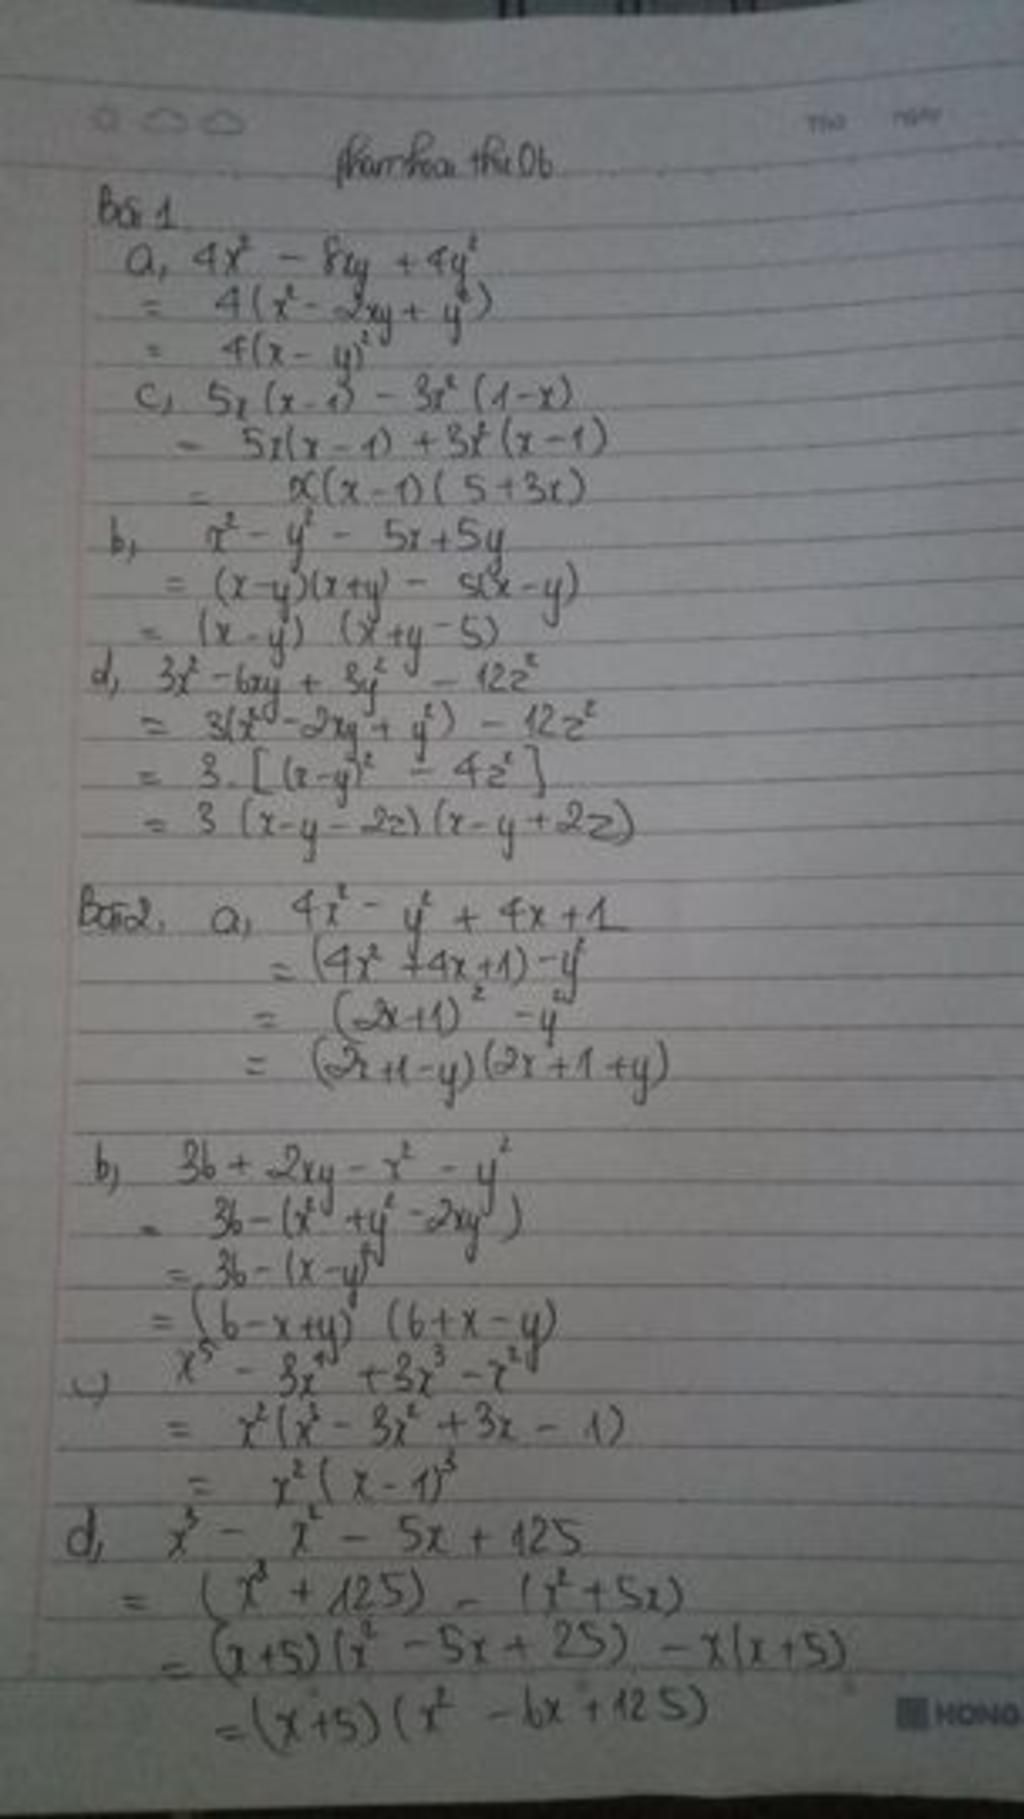 Thứ Ngày
Bài 1
a, 4x² - 8xy + 4y²
= 4(x² - 2xy + y²)
= 4(x - y)²
c, 5x(x-1) - 3x²(1-x)
= 5x(x-1) + 3x²(x-1)
= x(x-1)(5+3x)
b, x² - y² - 5x + 5y
= (x-y)(x+y) - 5(x-y)
= (x-y) (x+y-5)
d, 3x² - 6xy + 3y² - 12z²
= 3(x² - 2xy + y²) - 12z²
= 3.[(x-y)² - 4z²]
= 3 (x-y-2z)(x-y+2z)
Bài 2. a, 4x² - y² + 4x + 1
= (4x² + 4x + 1) - y²
= (2x+1)² - y²
= (2x+1-y)(2x+1+y)
b, 36 + 2xy - x² - y²
= 36 - (x² + y² - 2xy)
= 36 - (x-y)²
= (6-x+y) (6+x-y)
c, x⁵ - 3x⁴ + 3x³ - x²
= x²(x³ - 3x² + 3x - 1)
= x²(x-1)³
d, x³ - x² - 5x + 125
= (x³ + 125) - (x² + 5x)
= (x+5)(x² - 5x + 25) - x(x+5)
= (x+5)(x² - 6x + 125)
HONG